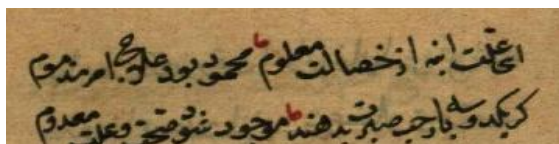 ای علت ابنه از خصالت معلوم محمود بود علاج امر مذموم
گر یکدو سه بار حب صبرت بدهند موجود شود صحت و علت معدوم